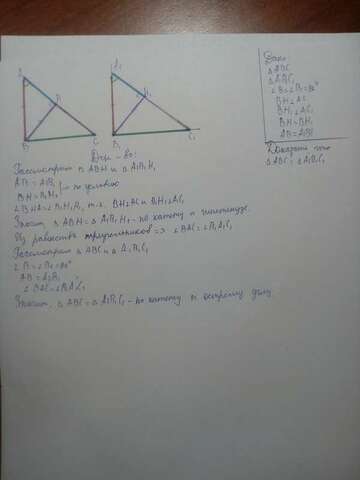 Дано:
△ABC
△A₁B₁C₁
∠B=∠B₁=90°
BH⊥AC
B₁H₁⊥A₁C₁
BH=B₁H₁
AB=A₁B₁
Доказать что
△ABC=△A₁B₁C₁
A
H
B
C
A₁
H₁
B₁
C₁
Док-во:
Рассмотрим △ABH и △A₁B₁H₁
AB=A₁B₁
BH=B₁H₁ } - по условию
∠BHA=∠B₁H₁A₁ т.к. BH⊥AC и B₁H₁⊥A₁C₁
Значит, △ABH=△A₁B₁H₁ - по катету и гипотенузе.
Из равенства треугольников => ∠BAC=∠B₁A₁C₁
Рассмотрим △ABC и △A₁B₁C₁
∠B=∠B₁=90°
AB=A₁B₁
∠BAC=∠B₁A₁C₁
Значит, △ABC=△A₁B₁C₁ - по катету и острому углу.